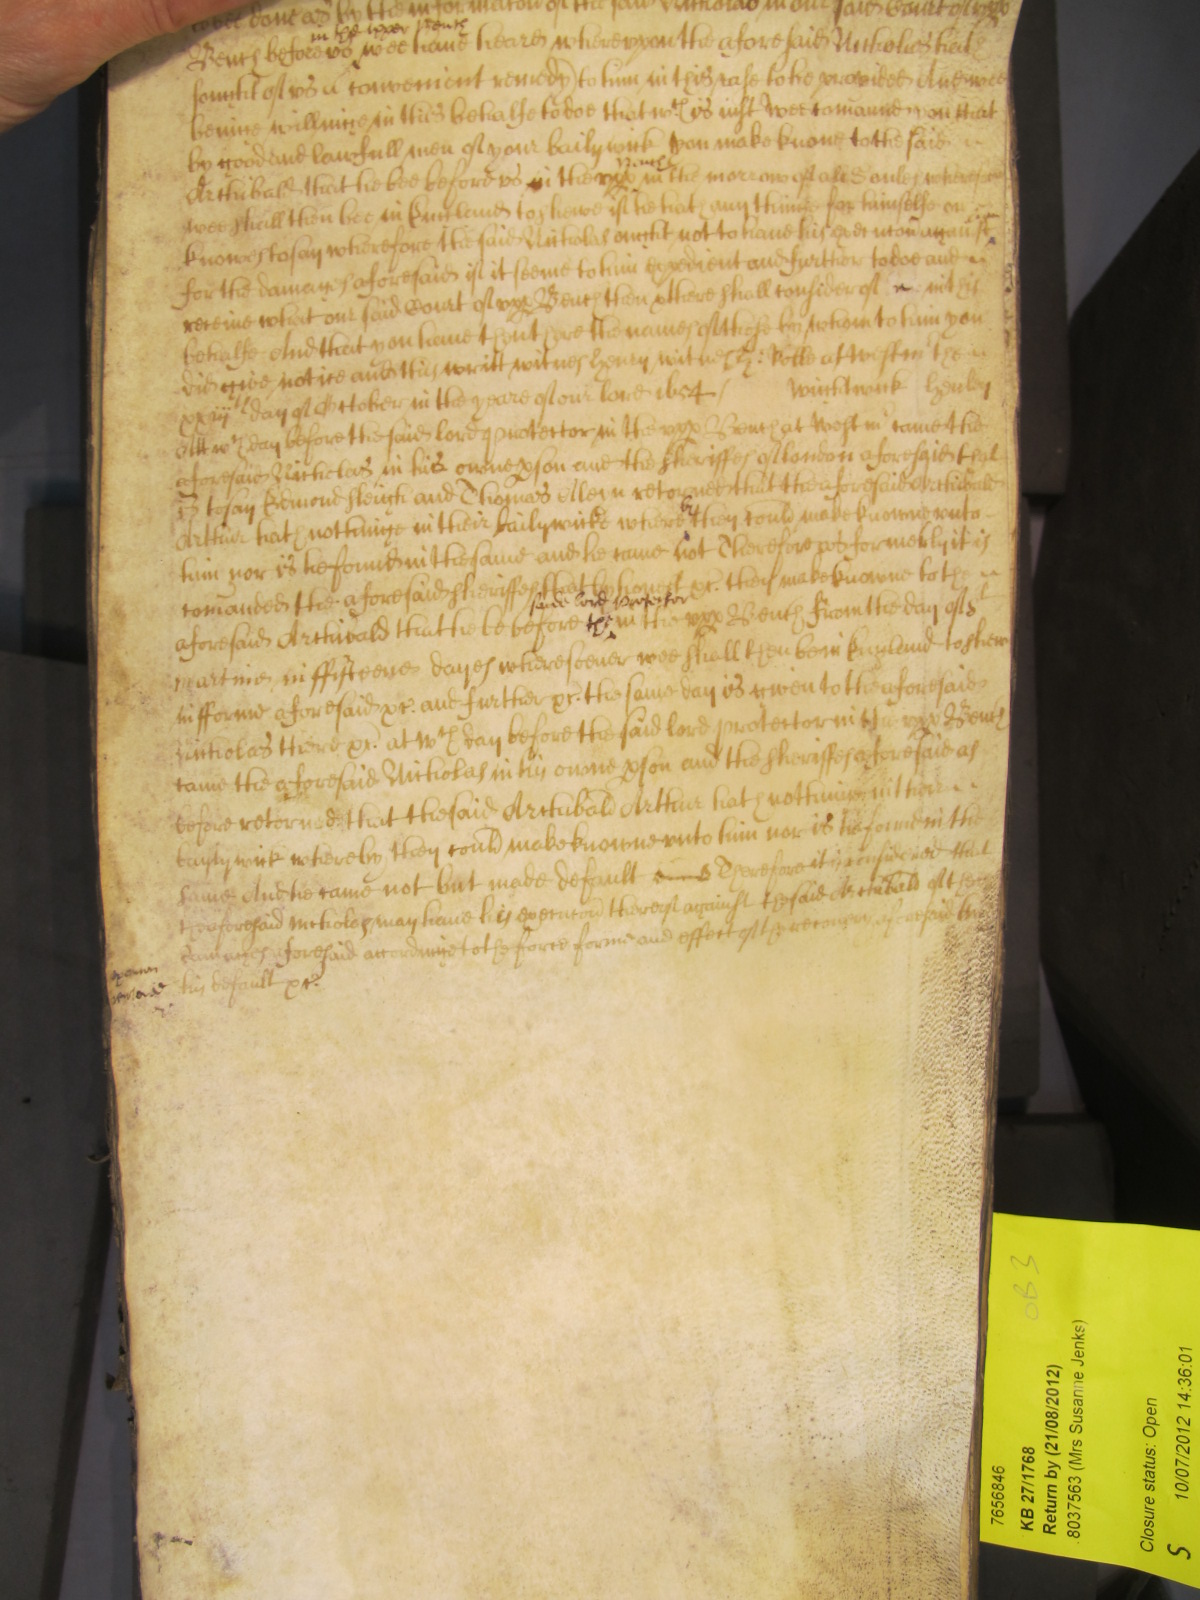 to bee done as by the informacon of the said Nicholas in our said Court of upp
in the upper Bench
Bench before us wee have heard whereupon the aforesaid Nicholas hath
sought of us a convenient remedy to him in this case to be provided And wee
beeing willinge in this behalfe to doe that wch is just Wee comaund you that
by good and lawfull men of your bailywick you make knowne to the said
Bench
Archibald that hee bee before us in the upp in the morrow of all soules wheresoever
wee shall then bee in England to shewe if he hath any thinge for himselfe or
knowes to say wherefore the said Nicholas ought not to have his execucon against
for the damages aforesaid if it seeme to him expedient and further to doe and
receive what our said Court of upp Bench then there shall consider of in this
behalfe And that you have then there the names of those by whom to him you
did give notice and this writt witnes Henry Rolle at Westm the
xxiijth day of October in the yeare of our lord 1654 / Wightwick Henley
Att wch day before the said lord protector in the upp Bench at Westm came the
aforesaid Nicholas in his owne pson and the Sheriffes of London aforesaid that
is to say Edmond Sleigh and Thomas Allein retorned that the aforesaid Archibald
Arthur hath nothinge in their bailywicke whereby they could make knowne unto
him nor is he found in the same and he came not Therefore as formerly it is
comanded the aforesaid Sheriffes that by honest &c. they make knowne to the
said lord protector
aforesaid Archibald that he be before the in the upp Bench From the day of St
Martine in fifteene dayes wheresoever wee shall then be in England to shew
in forme aforesaid &c. and further &c. the same day is given to the aforesaid
Nicholas there &c. at wch day before the said lord protector in the upp Bench
came the aforesaid Nicholas in his owne pson and the Sheriffes aforesaid as
before retorned that the said Archibald Arthur hath nothinge in their
baylywick whereby they could make knowne unto him nor is he found in the
same And he came not but made default Therefore it is considered that
the aforesaid Nicholas may have his execucon thereof against the said Archibald of the
damages aforesaid accordinge to the force forme and effect of the recovery aforesaid by
his default &c.
7656846
KB 27/1768
Return by (21/08/2012)
8037563 (Mrs Susanne Jenks)
OB 3
Closure status: Open
S 10/07/2012 14:36:01